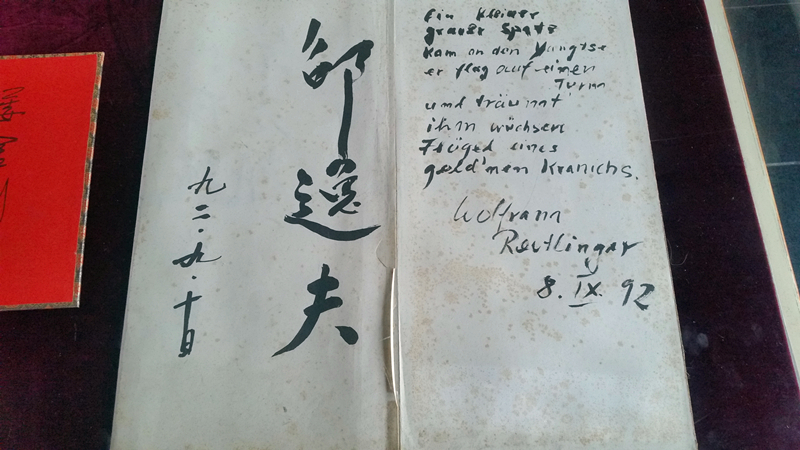 邵逸夫
九二.九.十日
Ein kleiner
grauer Spatz
kam an den Yangtse
er flog auf einen
Turm
und träumt'
ihm wüchsen
Flügel eines
gold'nen Kranichs.
Wolfram
Reutlinger
8. IX. 92